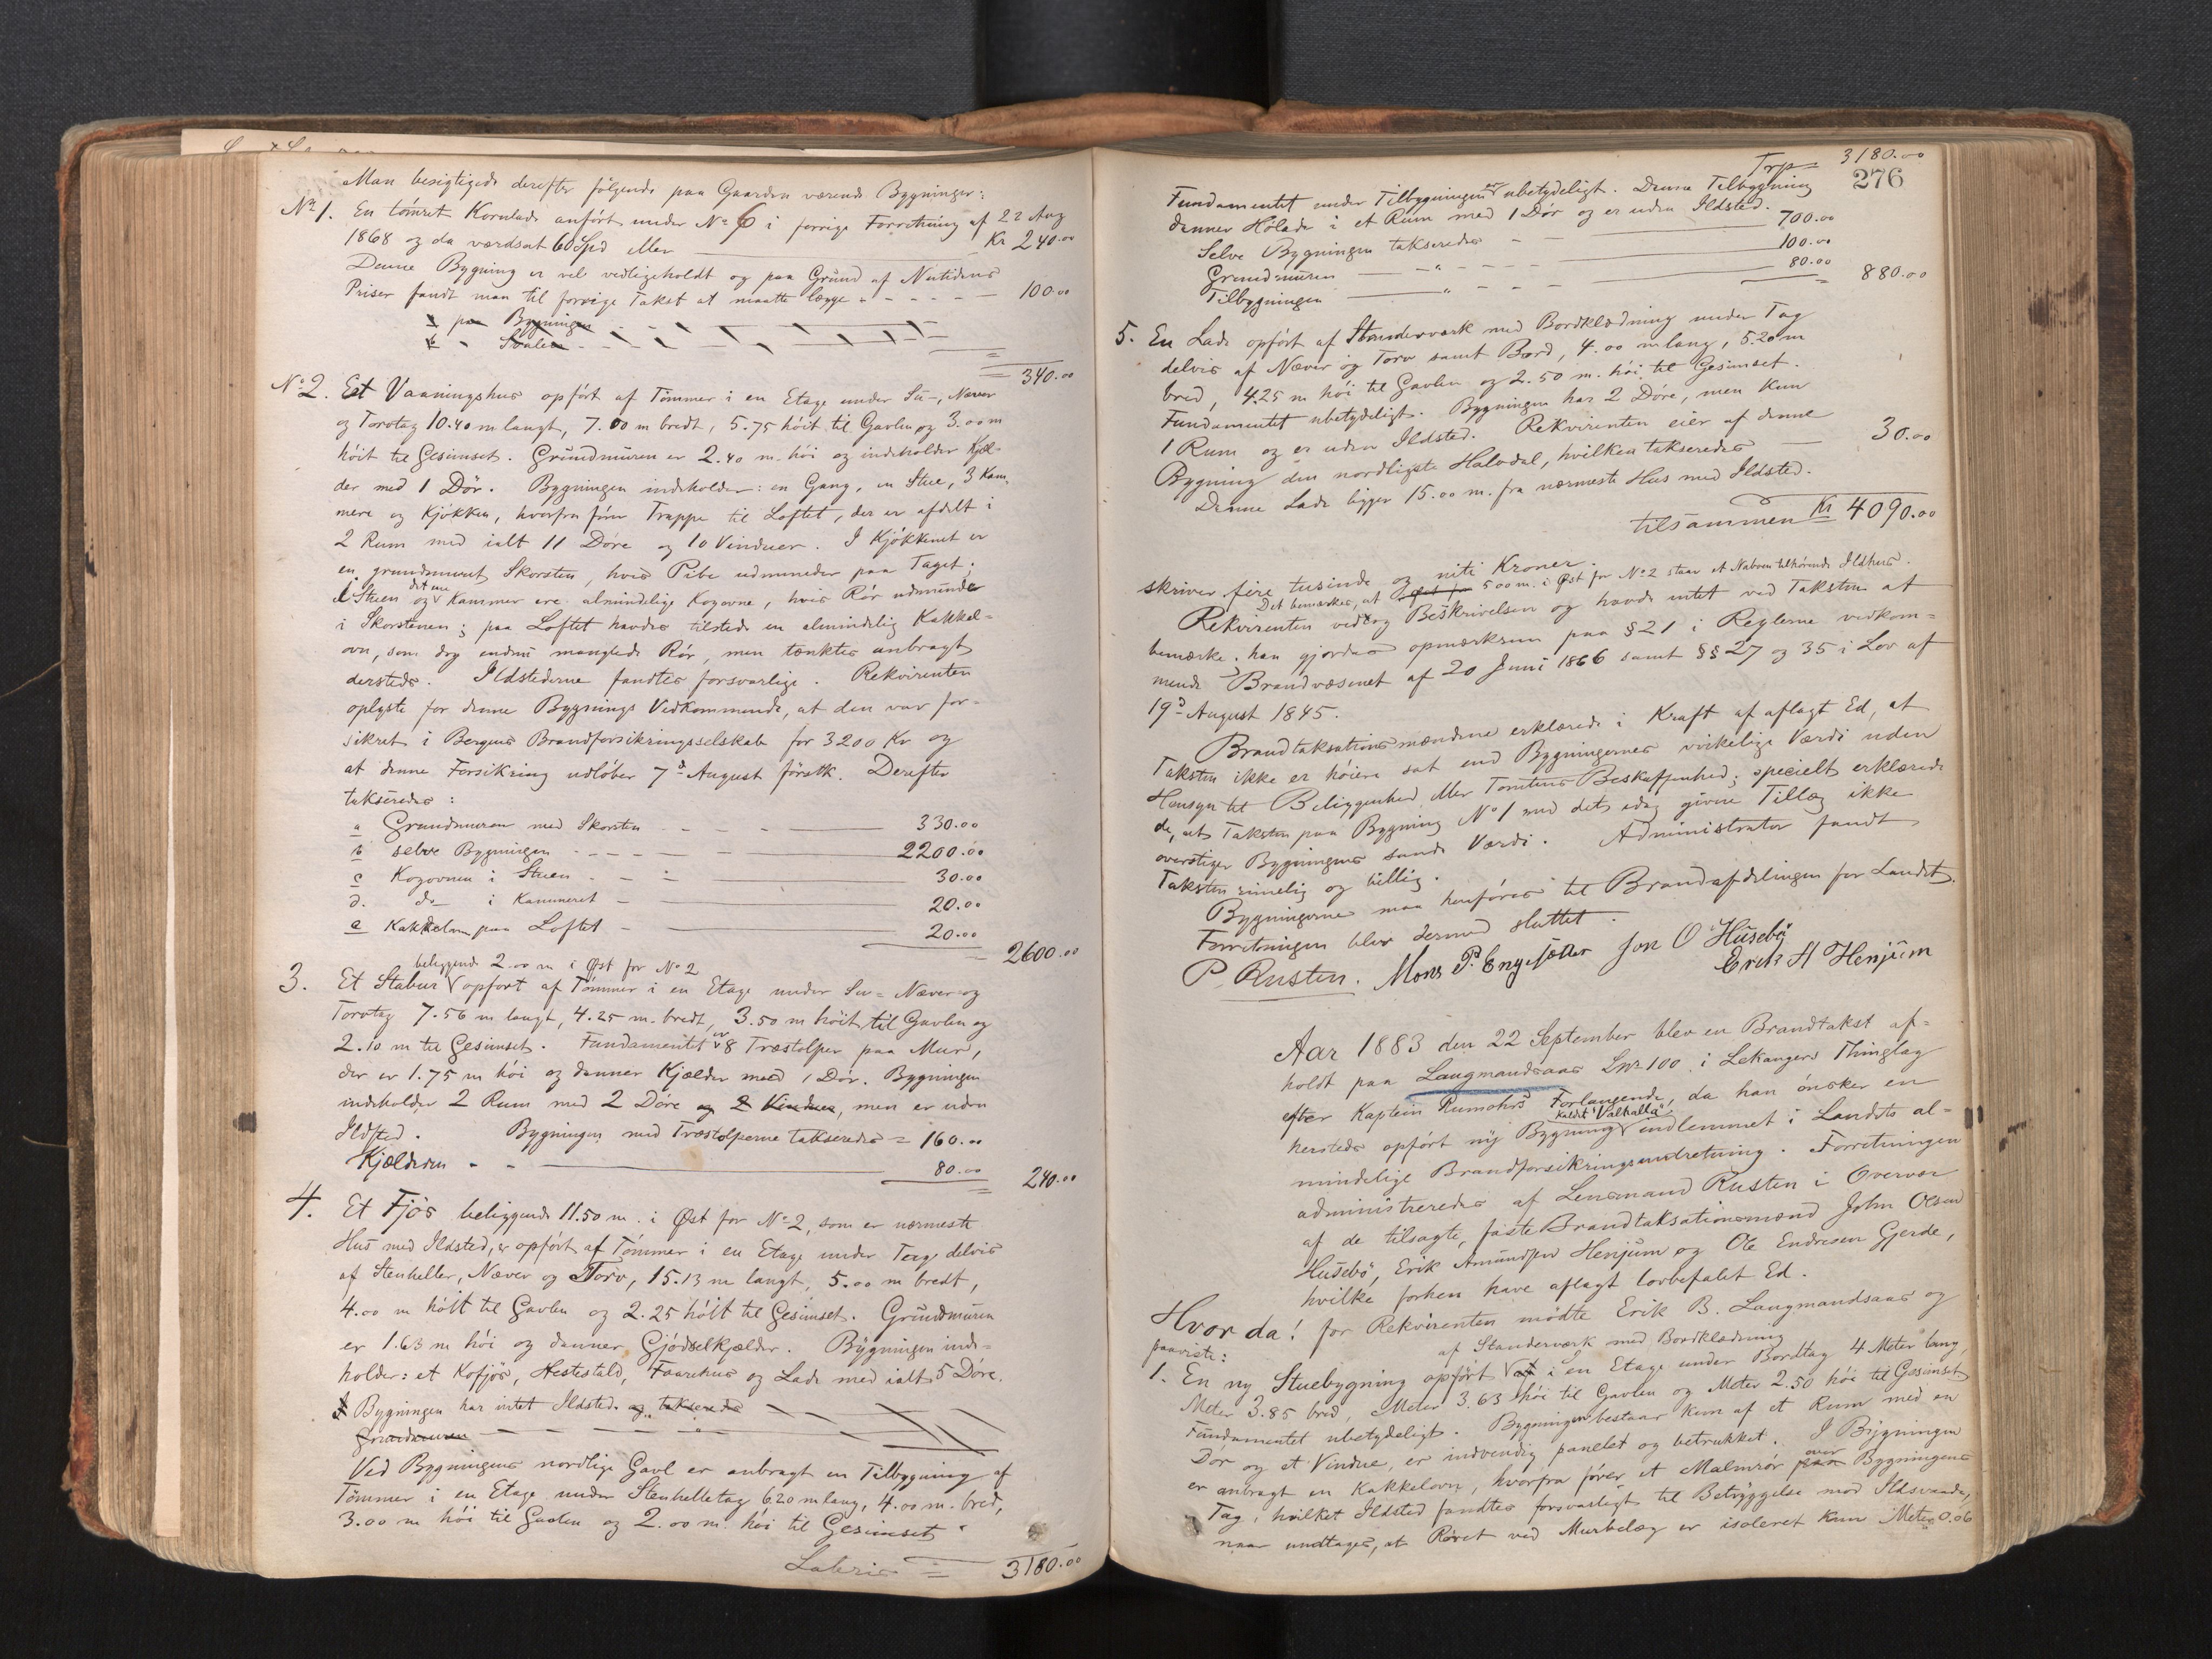 Man besigtigede derefter følgende paa Gaarden værende Bygninger:
No 1. En tømret Kornlade anført under No 6 i forrige Forretning af 22 Aug
1868 og da værdsat 60 Spd eller Kr 240.00
Denne Bygning er vel vedligeholdt og paa Grund af Nutidens
Priser fandt man til forrige Takst at maatte lægge 100.00
a paa Bygningen
b " Svalen
340.00
No 2. Et Vaaningshus opført af Tømmer i en Etage under Su-, Næver
og Torvtag 10.40 m langt, 7.00 m bredt, 5.75 høit til Gavlen og 3.00 m
høit til Gesimset. Grundmuren er 2.40 m. høi og indeholder Kjæl-
der med 1 Dør. Bygningen indeholder: en Gang, en Stue, 3 Kam-
mere og Kjøkken, hvorfra fører Trappe til Loftet, der er afdelt i
2 Rum med ialt 11 Døre og 10 Vinduer. I Kjøkkenet er
en grundmuret Skorsten, hvis Pibe udmunder paa Taget;
i Stuen og det ene Kammer ere almindelige Kogovne, hvis Rør udmunder
i Skorstenen; paa Loftet havdes tilstede en almindelig Kakkel-
ovn, som dog endnu manglede Rør, men tænktes anbragt
dersteds. Ildstederne fandtes forsvarlige. Rekvirenten
oplyste for denne Bygnings Vedkommende, at den var for-
sikret i Bergens Brandforsikringsselskab for 3200 Kr og
at denne Forsikring udløber 7d August førstk. Derefter
takseredes:
a Grundmuren med Skorsten 330.00
b selve Bygningen 2200.00
c Kogovnen i Stuen 30.00
d. do i Kammeret 20.00
e Kakkelovn paa Loftet 20.00
2600.00
beliggende 2.00 m i Øst for No 2
3. Et Stabur opført af Tømmer i en Etage under Su- Næver- og
Torvtag 7.56 m langt, 4.25 m. bredt, 3.50 m høit til Gavlen og
2.10 m til Gesimset. Fundamentet er 8 Træstolper paa Mur,
der er 1.75 m høi og danner Kjælder med 1 Dør. Bygningen
indeholder 2 Rum med 2 Døre og 2 Vinduer, men er uden
Ildsted. Bygningen med Træstolperne takseredes = 160.00
Kjælderen 80.00
240.00
4. Et Fjøs beliggende 11.50 m. i Øst for No 2, som er nærmeste
Hus med Ildsted, er opført af Tømmer i en Etage under Tag delvis
af Stenheller, Næver og Torv, 15.13 m langt, 5.00 m bredt,
4.00 m høit til Gavlen og 2.25 høit til Gesimset. Grundmuren
er 1.63 m høi og danner Gjødselkjælder. Bygningen inde-
holder: et Kofjøs, Hestestald, Faarehus og Lade med ialt 5 Døre.
Bygningen har intet Ildsted og takseredes
Grundmuren
Ved Bygningens nordlige Gavl er anbragt en Tilbygning af
Tømmer i en Etage under Stenhelletag 6.20 m lang, 4.00 m. bred,
3.00 m høi til Gavlen og 2.00 m. høi til Gesimset.
Lateris 3180.00
Trp 3180.00
276
Fundamentet under Tilbygningen er ubetydeligt. Denne Tilbygning
danner Hølade i et Rum med 1 Dør og er uden Ildsted.
Selve Bygningen takseredes 700.00
Grundmuren " 100.00
Tilbygningen " 80.00
880.00
5. En Lade opført af Standerværk med Bordklædning under Tag
delvis af Næver og Torv samt Bord, 4.00 m lang, 5.20 m
bred, 4.25 m høi til Gavlen og 2.50 m. høi til Gesimset.
Fundamentet ubetydeligt. Bygningen har 2 Døre, men kun
1 Rum og er uden Ildsted. Rekvirenten eier af denne
Bygning den nordligste Halvdel, hvilken takseredes 30.00
Denne Lade ligger 15.00 m. fra nærmeste Hus med Ildsted.
tilsammen Kr 4090.00
skriver fire tusinde og niti Kroner.
Det bemærkes, at i Øst fra 5.00 m. i Øst for No 2 staar et Naboen tilhørende Ildhus.
Rekvirenten vedtog Beskrivelsen og havde intet ved Taksten at
bemærke. han gjordes opmærksom paa § 21 i Reglerne vedkom-
mende Brandvæsenet af 20 Juni 1866 samt §§ 27 og 35 i Lov af
19d August 1845.
Brandtaksationsmændene erklærede i Kraft af aflagt Ed, at
Taksten ikke er høiere sat end Bygningernes virkelige Værdi uden
Hensyn til Beliggenhed eller Tomtens Beskaffenhed; specielt erklærede
de, at Taksten paa Bygning No 1 med det idag givne Tillæg ikke
overstiger Bygningens sande Værdi. Administrator fandt
Taksten rimelig og billig.
Bygningerne maa henføres til Brandafdelingen for Landet.
Forretningen blev dermed sluttet.
P. Rusten. Mons P. Engesætter Jon O Husebø
Erik A Henjum
Aar 1883 den 22 September blev en Brandtakst af-
holdt paa Laugmandsaas Lnr 100 i Lekangers Thinglag
efter Kaptein Rumohrs Forlangende, da han ønsker en
hersteds opført ny Bygning kaldt "Valhalla" indlemmet i Landets al-
mindelige Brandforsikringsindretning. Forretningen
administreredes af Lensmand Rusten i Overvær
af de tilsagte, faste Brandtaksationsmænd John Olsen
Husebø, Erik Amundsen Henjum og Ole Endresen Gjerde,
hvilke forhen have aflagt lovbefalet Ed.
Hvor da! for Rekvirenten mødte Erik B. Laugmandsaas og
paaviste:
af Standerværk med Bordklædning
1. En ny Stuebygning opført af i en Etage under Bordtag 4 Meter lang,
Meter 3.85 bred, Meter 3.63 høi til Gavlen og Meter 2.50 høi til Gesimset
Fundamentet ubetydeligt. Bygningen bestaar kun af et Rum med en
Dør og et Vindue, er indvendig panelet og betrukket. I Bygningen
er anbragt en Kakkelovn, hvorfra fører et Malmrør paa over Bygningens
Tag, hvilket Ildsted fandtes forsvarligt til Betryggelse mod Ildsvaade,
naar undtages, at Røret ved Murbelæg er isoleret kun Meter 0.06